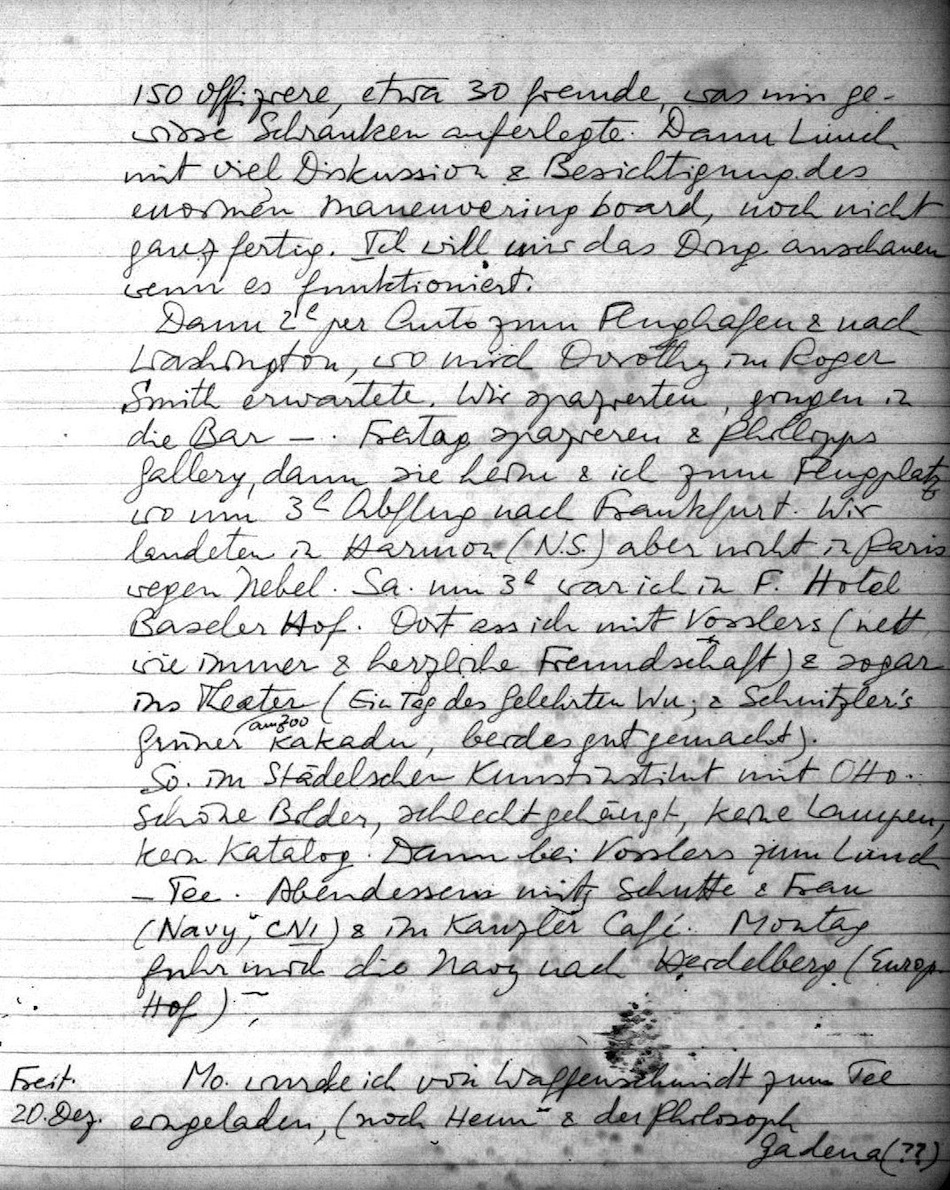 150 Offiziere, etwa 30 fremde, was mir ge-
wisse Schranken auferlegte. Dann Lunch
mit viel Diskussion & Besichtigung des
enormen maneuvering board, noch nicht
ganz fertig. Ich will mir das Ding anschauen
wenn es funktioniert.
Dann 2h per Auto zum Flughafen & nach
Washington, wo mich Dorothy im Roger
Smith erwartete. Wir spazierten, gingen in
die Bar —. Freitag spazieren & Phillipps
Gallery, dann sie heim & ich zum Flugplatz
wo um 3h Abflug nach Frankfurt. Wir
landeten in Harmon (N.S.) aber nicht in Paris
wegen Nebel. Sa. um 3h war ich in F. Hotel
Baseler Hof. Dort ass ich mit Vosslers (nett
wie immer & herzliche Freundschaft) & sogar
ins Theater (Ein Tag des Gelehrten Wu, & Schnitzler's
am Zoo
Grüner Kakadu, beides gut gemacht).
So. im Städelschen Kunstinstitut mit Otto.
Schöne Bilder, schlecht gehängt, keine Lampen,
kein Katalog. Dann bei Vosslers zum Lunch
— Tee. Abendessen mit Schutte & Frau
(Navy, CNI) & im Kanzler Café. Montag
fuhr mich die Navy nach Heidelberg (Europ.
Hof) —
Freit. 20. Dez.
Mo. wurde ich von Waffenschmidt zum Tee
eingeladen, (noch Henn & der Philosoph
Gadena (??)